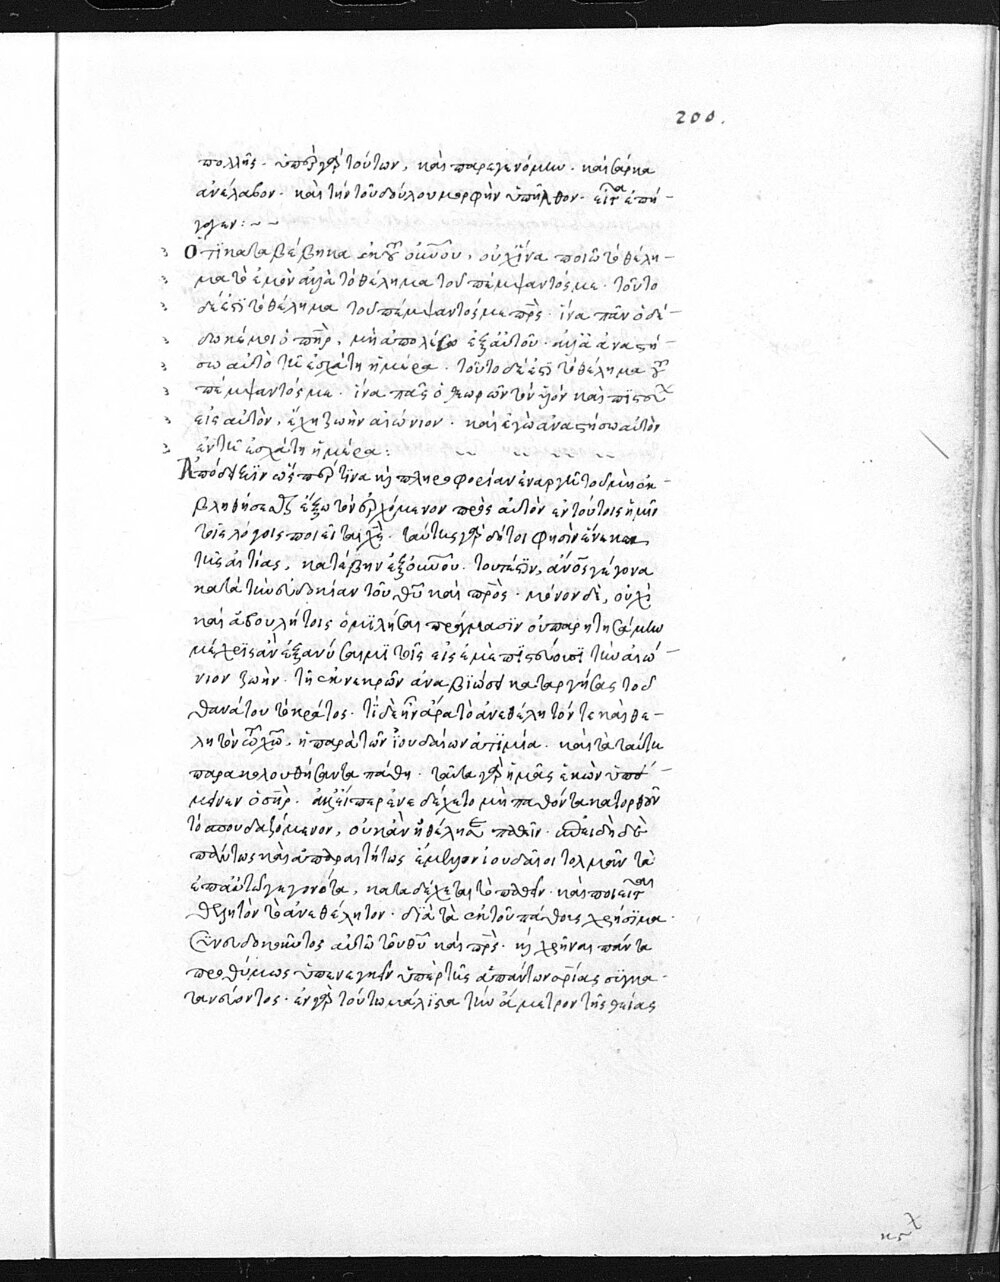 200.
πολλῆς. ὑπὲρ γὰρ τούτων, καὶ παρεγενόμην. καὶ σάρκα
ἀνέλαβον. καὶ τὴν τοῦ δούλου μορφὴν ὑπῆλθον. εἶτα ἐπή-
γαγεν:~~
Ὅτι καταβέβηκα ἐκ τοῦ οὐνοῦ, οὐχ ἵνα ποιῶ τὸ θέλη-
μα τὸ ἐμὸν ἀλλὰ τὸ θέλημα τοῦ πέμψαντός με. τοῦτο
δέ ἐστι τὸ θέλημα τοῦ πέμψαντός με πρς. ἵνα πᾶν ὃ δέ-
δωκέ μοι ὁ πηρ, μὴ ἀπολέσω ἐξ αὐτοῦ. ἀλλὰ ἀναστή-
σω αὐτὸ τῇ ἐσχάτῃ ἡμέρα. τοῦτο δέ ἐστι τὸ θέλημα τοῦ
πέμψαντός με. ἵνα πᾶς ὁ θεωρῶν τὸν υἱὸν καὶ πιστεύων
εἰς αὐτὸν, ἔχῃ ζωὴν αἰώνιον. καὶ ἐγὼ ἀναστήσω αὐτὸν
ἐν τῇ ἐσχάτῃ ἡμέρα:
Ἀπόδειξιν ὥσπερ τινα καὶ πληροφορίαν ἐναργῆ τοῦ μὴ ἐκ-
βληθήσεσθαι ἔξω τὸν ἐρχόμενον πρὸς αὐτὸν ἐν τούτοις ἡμῖν
τοῖς λόγοις ποιεῖται χς. ταύτης γὰρ δή τοι φησὶν ἕνεκεν
τῆς αἰτίας, κατέβην ἐξ οὐνοῦ. τουτέστιν, ἄνος γέγονα
κατὰ τὴν εὐδοκίαν τοῦ θυ καὶ πρς. μόνον δὲ, οὐχὶ
καὶ ἀβουλήτοις ὁμιλῆσαι πράγμασιν οὐ παρῃτησάμην
μέχρις ἂν ἐξανύσαιμι τοῖς εἰς ἐμὲ πιστεύουσι τὴν αἰώ-
νιον ζωὴν. τῇ ἐκ νεκρῶν ἀναβιώσει καταργήσας τοῦ
θανάτου τὸ κράτος. τί δὲ ἦν ἄρα τὸ ἀνεθέλητόν τε καὶ θε-
λητὸν τῷ χῷ, ἡ παρὰ τῶν ἰουδαίων ἀτιμία. καὶ τὰ ταύτῃ
παρακολουθήσαντα πάθη. ταῦτα γὰρ ἡμᾶς ἑκὼν ὑπέ-
μεινεν ὁ σηρ. ἀλλ' εἴπερ ἐνεδέχετο μὴ παθόντα κατορθοῦν
τὸ σπουδαζόμενον, οὐκ ἂν ἠθέλησε παθεῖν. ἐπειδὴ δὲ
πάντως καὶ ἀπαραιτήτως ἔμελλον ἰουδαῖοι τολμᾶν τὰ
ἐπ' αὐτῷ γεγονότα, καταδέχεται τὸ παθεῖν. καὶ ποιεῖται
θελητὸν τὸ ἀνεθέλητον. διὰ τὰ ἐκ τοῦ πάθους χρήσιμα.
συνευδοκοῦντος αὐτῷ τοῦ θυ καὶ πρς. καὶ χρῆναι πάντα
προθύμως ὑπενεγκεῖν ὑπὲρ τῆς ἁπάντων σριας σίγνα-
τανεύοντος. ἐν γὰρ τούτῳ μάλιστα τὴν ἄμετρον τῆς θείας